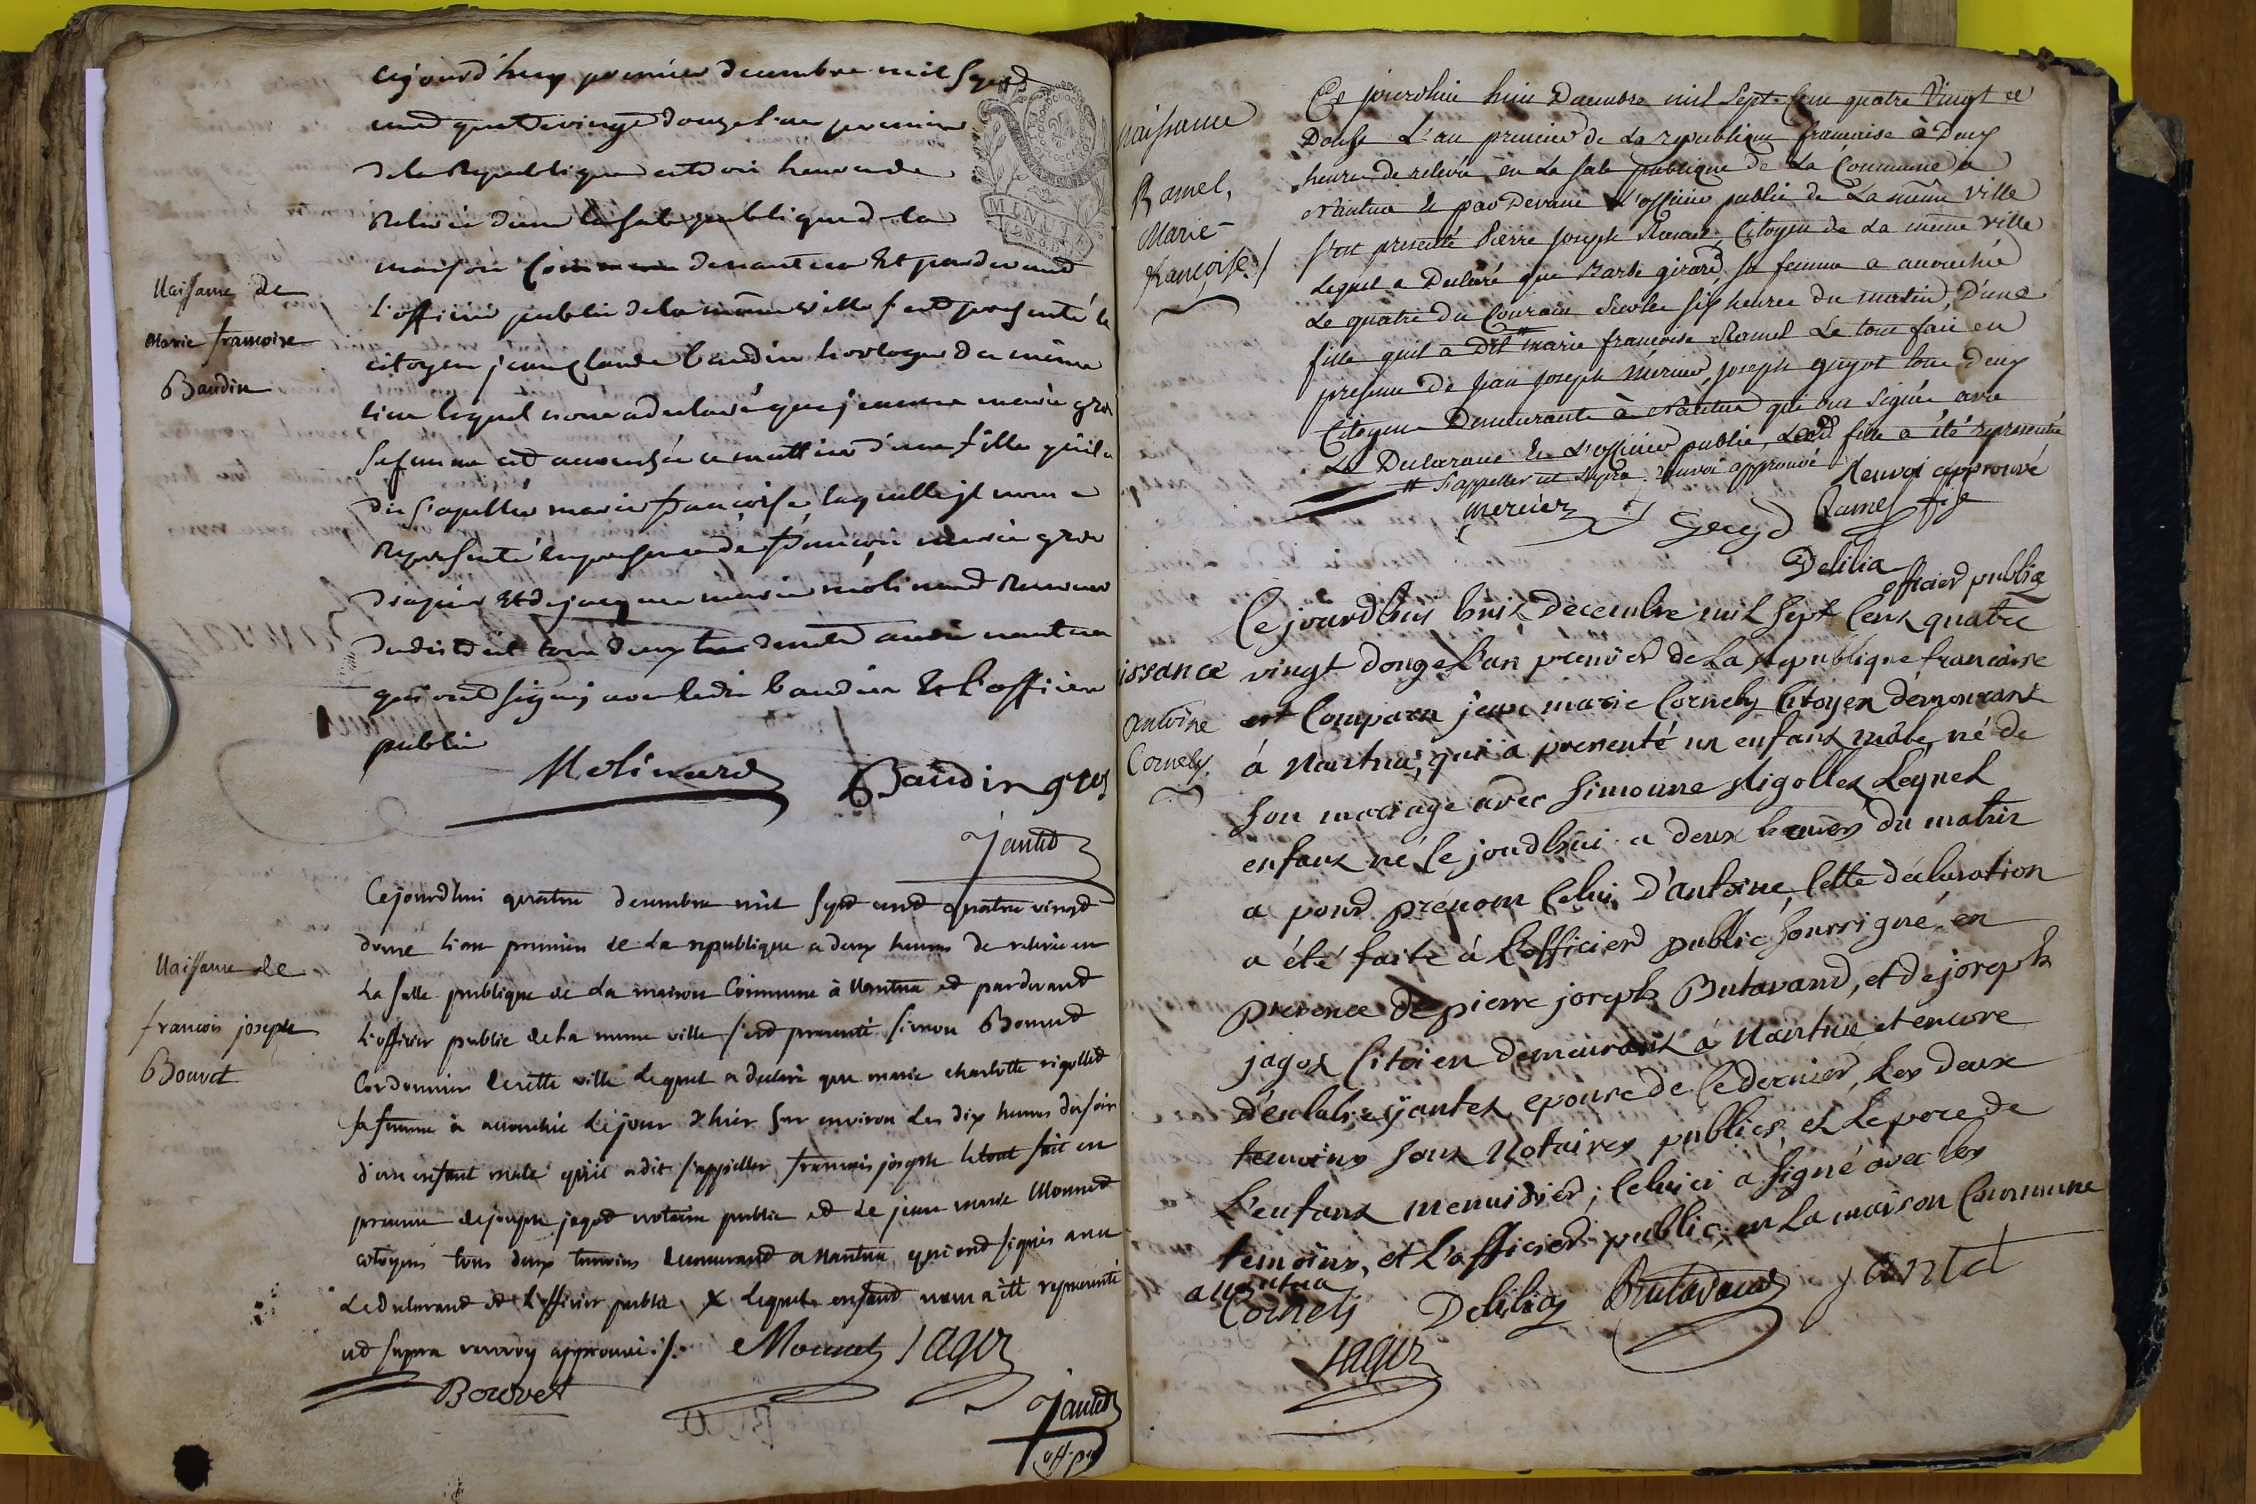 aujourd'huy premier decembre mil sept
cent quatrevingt douze l'an premier
de la Republique et dix heure de
Relevée dans la sale publique de la
maison Commune denantua Et pardevant
l'officier public de la même ville s'est presenté le
citoyen jean Claude baudin horloger du même
lieu lequel nous a declaré que jeanne marie gros
sa femme est accouchée ce mattin d'une fille qu'il a
dit s'apeller marie françoise laquelle il nous a
Representé en presence de françois marie gros
drapier Et de jacques marie molinard Receveur
du district tous deux demt audit nantua
qui ont signé avec ledit baudin Et l'officier
public
Molinard Baudin gros
Jantet
Naissance de
Marie francoise
Baudin
MINUTE
Cejourdhui quatre decembre mil sept cent quatre vingt
douze l'an premier de la republique a deux heures de relevée en
La salle publique de la maison Commune à Nantua et pardevant
L'officier public de la meme ville s'est presenté simon Bouvet
Cordonnier de cette ville Lequel a declaré que marie charlotte rigollet
sa femme à accouchée Le jour d'hier sur environ Les dix heures du soir
d'un enfant male qu'il a dit s'appeller francois joseph le tout fait en
presence de joseph jagot notaire public et de jean marie Monnet
citoyens tous deux temoins demeurant a Nantua qui ont signés avec
Le declarant et L'officier public x lequel enfant nous a été representé
ut supra renvoy approuvé ./. Mounet Jagot
Bouvet
Jantet
off. p.
Naissance de
francois joseph
Bouvet
naissance
Ramel,
Marie-
françoise./
Ce jourdhui huit Decembre mil Sept Cent quatre Vingt et
Douse L'an premier de La republique francoise à Deux
heures de relevée en La sale publique de La Commune a
Nantua et par Devant L'officier public de La même ville
s'est presenté Pierre Joseph Ramel, Citoyen de La même ville
Lequel a Declaré que Barbe girard sa femme a accouchée
Le quatre du Courant sur les six heures du matin, D'une
fille quil a Dit # marie francoise Ramel Le tout fait en
presence De Jean Joseph Mercier, joseph guyot tous deux
Citoyens Demeurants à Nantua qui ont signés avec
Le Declarant Et L'officier public, Lad fille a été representée
# S'appeller ut supra. renvoi approuvé Renvoi approuvé
Mercier Guyot Ramel fils
Delilia
officier public
issance
antoine
Cornely.
Ce jourdhui huit decembre mil sept Cent quatre
vingt douze L'an premier de La republique francaise
est Comparu jean marie Cornely Citoyen demeurant
à Nantua, qui a presenté un enfant mâle, né de
son mariage avec Simonne Rigollet, Lequel
enfant né Ce jourdhui a deux heures du matin
a pour prénom Celui d'antoine, Cette déclaration
a été faite à L'officier public soussigné, en
presence de pierre joseph Butavand, et de joseph
jagot Citoien demeurants à Nantua et encore
d'eulalie jantet, epouse de Ce dernier, Les deux
temoins sont Notaires publics, et Le pere de
L'enfant menuisier; Celui ci a signé avec les
temoins, et L'officier public, en La maison Commune
a Nantua
Cornely Delilia Butavand jantet
Jagot